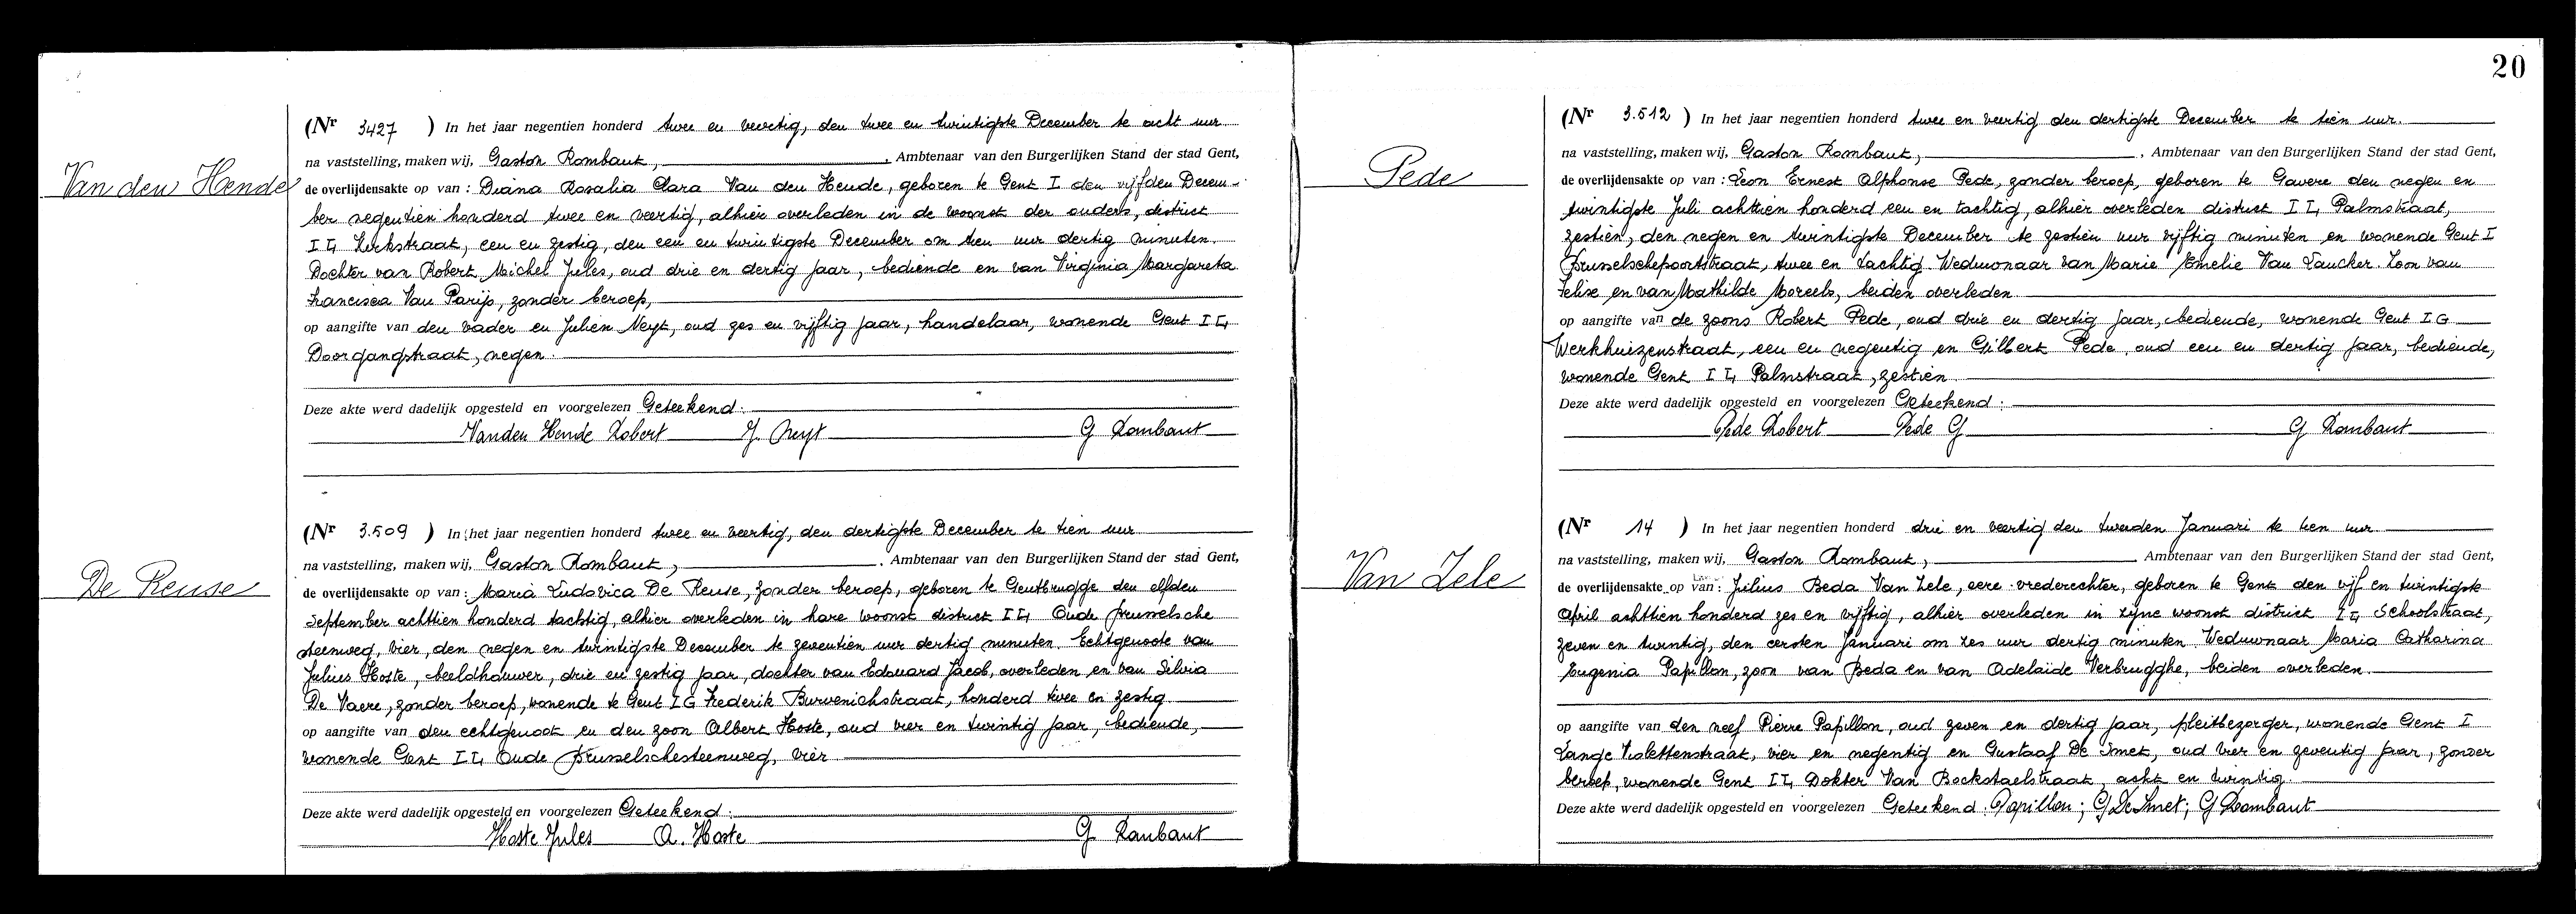 20
Van den Hende
(Nr 3427 ) In het jaar negentien honderd twee en veertig, den twee en twintigste December te acht uur
na vaststelling, maken wij, Gaston Rombaut, , Ambtenaar van den Burgerlijken Stand der stad Gent,
de overlijdensakte op van : Diana Rosalia Clara Van den Hende, geboren te Gent I den vijfden Decem-
ber negentien honderd twee en veertig, alhier overleden in de woonst der ouders, district
I L, Kerkstraat, een en zestig, den een en twintigste December om tien uur dertig minuten.
Dochter van Robert Michel Jules, oud drie en dertig jaar, bediende en van Virginia Margareta
Francisca Van Parijs, zonder beroep,
op aangifte van den vader en Julien Neyt, oud zes en vijftig jaar, handelaar, wonende Gent I L,
Doorgangstraat, negen.
Deze akte werd dadelijk opgesteld en voorgelezen Geteekend:
Vanden Hende Robert J. Neyt G Rombaut
De Reuse
(Nr 3.509 ) In het jaar negentien honderd twee en veertig, den dertigste December te tien uur
na vaststelling, maken wij, Gaston Rombaut, , Ambtenaar van den Burgerlijken Stand der stad Gent,
de overlijdensakte op van : Maria Ludovica De Reuse, zonder beroep, geboren te Gentbrugge den elfden
September achttien honderd tachtig, alhier overleden in hare woonst district I L, Oude Brusselsche
steenweg, vier, den negen en twintigste December te zeventien uur dertig minuten. Echtgenoote van
Julius Hoste, beeldhouwer, drie en zestig jaar, dochter van Edouard Jacob, overleden en van Silvia
De Vaere, zonder beroep, wonende te Gent I G Frederik Burvenichstraat, honderd twee en zestig
op aangifte van den echtgenoot en den zoon Albert Hoste, oud vier en twintig jaar, bediende,
wonende Gent I L, Oude Brusselschesteenweg, vier
Deze akte werd dadelijk opgesteld en voorgelezen Geteekend:
Hoste Jules A. Hoste G Rombaut
Pede
(Nr 3.512 ) In het jaar negentien honderd twee en veertig den dertigste December te tien uur.
na vaststelling, maken wij, Gaston Rombaut, , Ambtenaar van den Burgerlijken Stand der stad Gent,
de overlijdensakte op van : Leon Ernest Alphonse Pede, zonder beroep, geboren te Gavere den negen en
twintigste Juli achttien honderd een en tachtig, alhier overleden district I L, Palmstraat,
zestien, den negen en twintigste December te zestien uur vijftig minuten en wonende Gent I
Brusselschepoortstraat, twee en tachtig. Weduwnaar van Marie Emelie Van Laucker. Zoon van
Felise en van Mathilde Moreels, beiden overleden.
op aangifte van de zoons Robert Pede, oud drie en dertig jaar, bediende, wonende Gent I G
Werkhuizenstraat, een en negentig en Gilbert Pede, oud een en dertig jaar, bediende,
wonende Gent I L, Palmstraat, zestien.
Deze akte werd dadelijk opgesteld en voorgelezen Geteekend:
Pede Robert Pede G G Rombaut
Van Zele
(Nr 14 ) In het jaar negentien honderd drie en veertig den tweeden Januari te tien uur
na vaststelling, maken wij, Gaston Rombaut, Ambtenaar van den Burgerlijken Stand der stad Gent,
de overlijdensakte op van : Julius Beda Van Zele, eere-vrederechter, geboren te Gent den vijf en twintigste
April achttien honderd zes en vijftig, alhier overleden in zijne woonst district I L, Schoolstraat,
zeven en twintig, den eersten Januari om zes uur dertig minuten. Weduwnaar Maria Catharina
Eugenia Papillon, zoon van Beda en van Adelaïde Verbrugghe, beiden overleden.
op aangifte van den neef Pierre Papillon, oud zeven en dertig jaar, pleitbezorger, wonende Gent I
Lange Violettenstraat, vier en negentig en Gustaaf De Smet, oud vier en zeventig jaar, zonder
beroep, wonende Gent I L, Dokter Van Bockstaelstraat, acht en twintig.
Deze akte werd dadelijk opgesteld en voorgelezen Geteekend: Papillon; G De Smet; G Rombaut